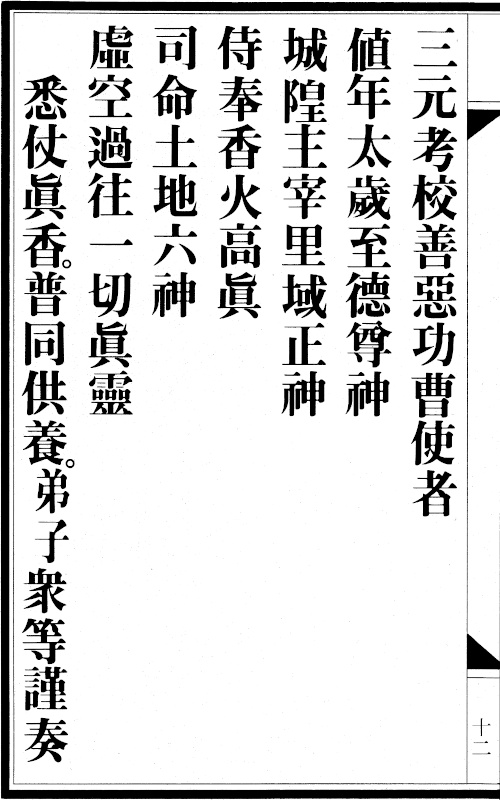 三元考校善惡功曹使者
值年太歲至德尊神
城隍主宰里域正神
侍奉香火高眞
司命土地六神
虛空過往一切眞靈
悉仗眞香。普同供養。弟子衆等謹奏
十二